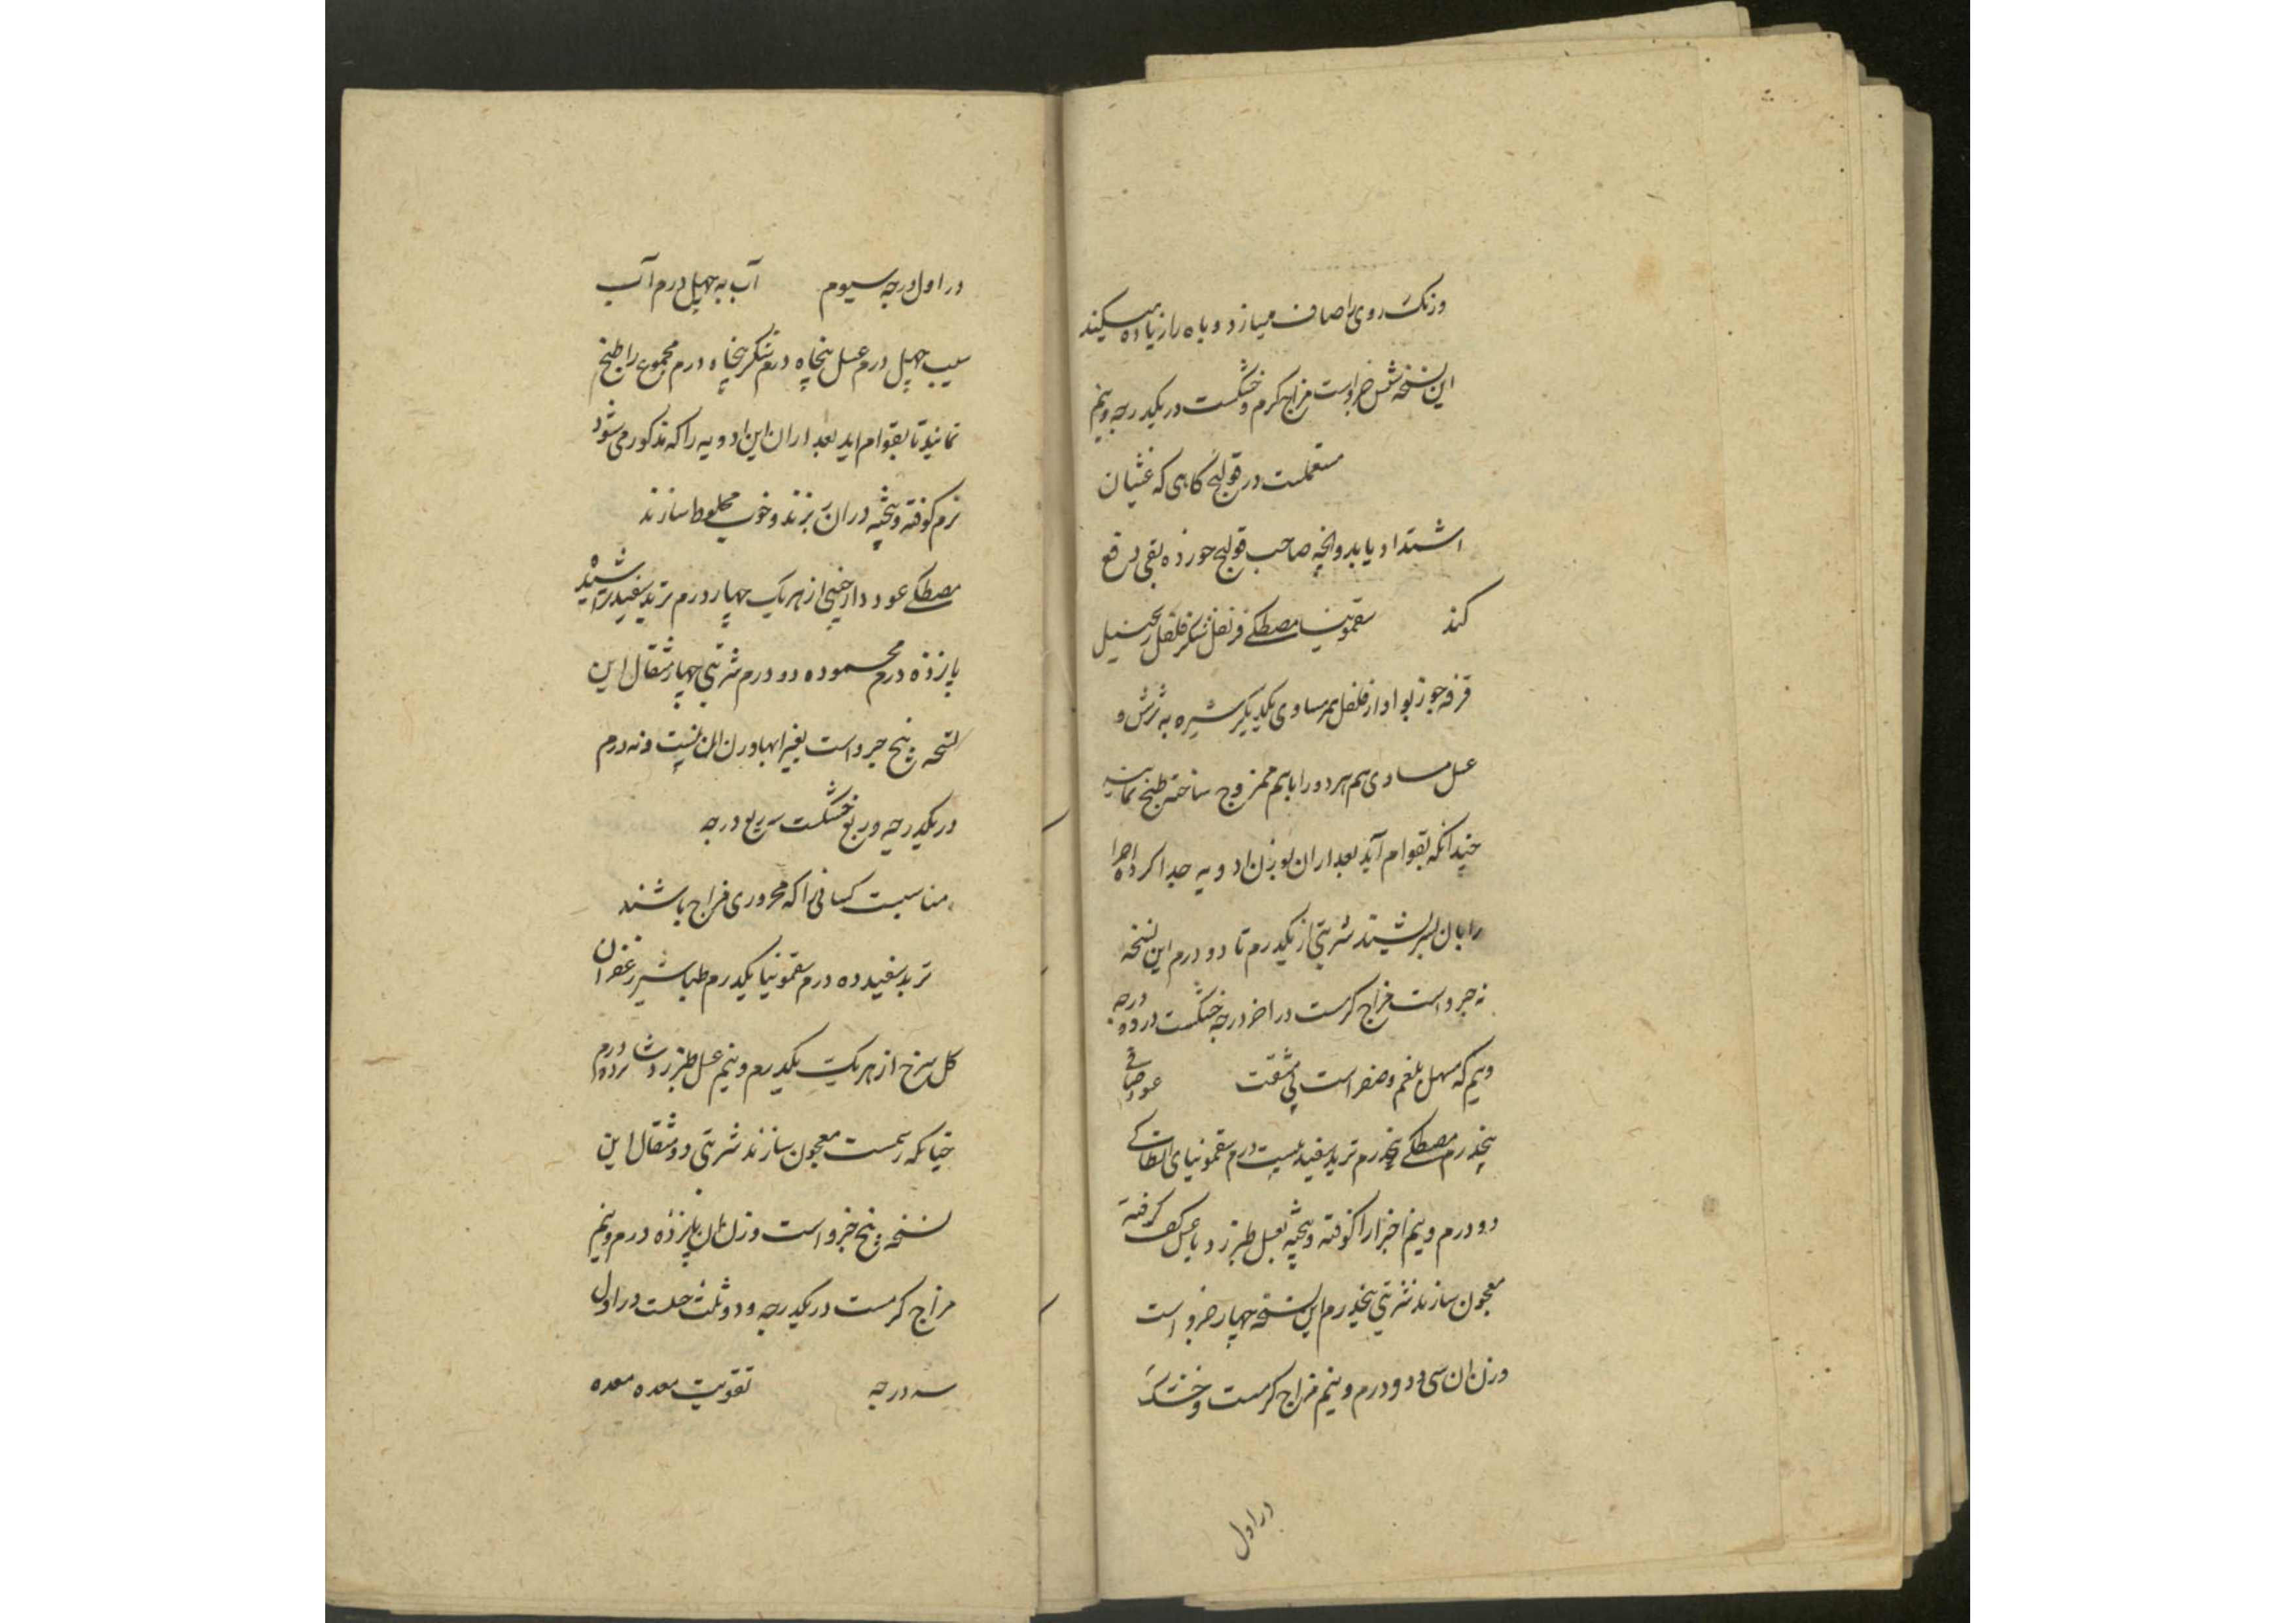 ورنک روی را صاف میسازد و باه را زیاده میکند
این نسخه شش جزواست مزاج کرم و خشکست در یکدرجه و نیم
مستعملست در قولنج کاهی که غثیان
اشتداد یابد و انچه صاحب قولنج خورده بقی دفع
کند سقمونیا مصطکی قرنفل شکر فلفل زنجبیل
قرفه جوزبوا دارفلفل هم مساوی یکدیکر شیره به ترش و
عسل مساوی هم هر دو را باهم ممزوج ساخته طبخ نمایند
چندانکه بقوام آید بعد ازان بوزن ادویه جدا کرده اجزا
را بان بسرشند شربتی از یکدرم تا دو درم این نسخه
نه جزواست مزاج کرمست در اخر درجه خشکست در دو درجه
و نیم که مسهل بلغم و صفراست بی مشقت عود صافی
پنجدرم مصطکی پنجدرم تربد سفید بیست درم سقمونیای انطاکی
دو درم و نیم اجزا را کوفته و بیخته بعسل طبرزد یا عسل کف کرفته
معجون سازند شربتی پنجدرم این نسخه چهار جزو است
وزن ان سی و دو درم و نیم مزاج کرمست و خشک
در اول
در اول درجه سیوم آب به چهل درم آب
سیب چهل درم عسل پنجاه درم شکر پنجاه درم مجموع را طبخ
نمایند تا بقوام اید بعد ازان این ادویه را که مذکور می شود
نرم کوفته و بیخته دران ریزند و خوب مخلوط سازند
مصطکی عود دارچینی از هر یک چهار درم تربد سفید تراشیده
پانزده درم محموده دو درم شربتی چهار مثقال این
نسخه پنج جزو است بغیر ابها وزن ان بیست و نه درم
در یکدرجه و ربع خشکست سه ربع درجه
مناسبست کسانی را که محروری مزاج باشند
تربد سفید ده درم سقمونیا یکدرم طباشیر زعفران
کل سرخ از هر یک یکدرم و نیم عسل طبرزد شانزده درم
چنانکه رسمست معجون سازند شربتی دو مثقال این
نسخه پنج جزو است وزن ان پانزده درم و نیم
مزاج کرمست در یکدرجه و دو ثلث خشکست در اول
سه درجه تقویت معده معده